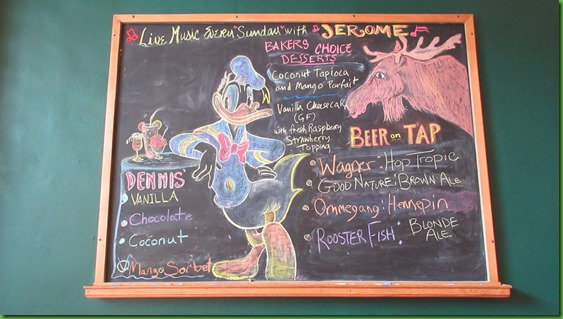 Live Music Every "Sunday" with JEROME
BAKERS CHOICE
DESSERTS
Coconut Tapioca
and Mango Parfait
Vanilla Cheesecake
(GF)
with fresh Raspberry
Strawberry
Topping
BEER on TAP
Wagner: Hop Tropic
GOOD NATURE: BROWN ALE
Ommegang: Hennepin
ROOSTER FISH: BLONDE
ALE
DENNIS
VANILLA
Chocolate
Coconut
V Mango Sorbet